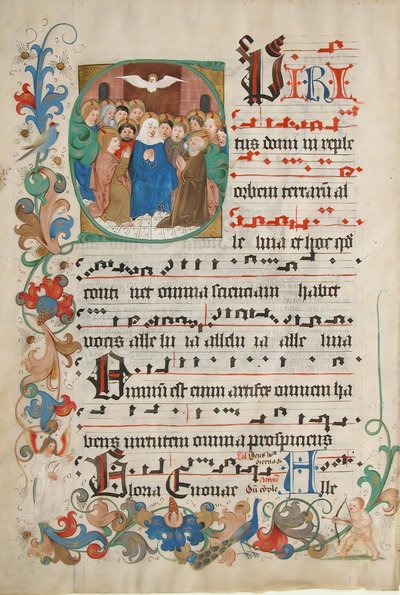 SPIRI
tus domi ni reple
orbem terrarū al
le luia et hoc qđ
conti net omnia scienciam habet
vocis alle lu ia allelu ia alle luia
Omnium est enim artifex omnem ha
bens virtutem omnia prospiciens
Gloria Euouae Alle